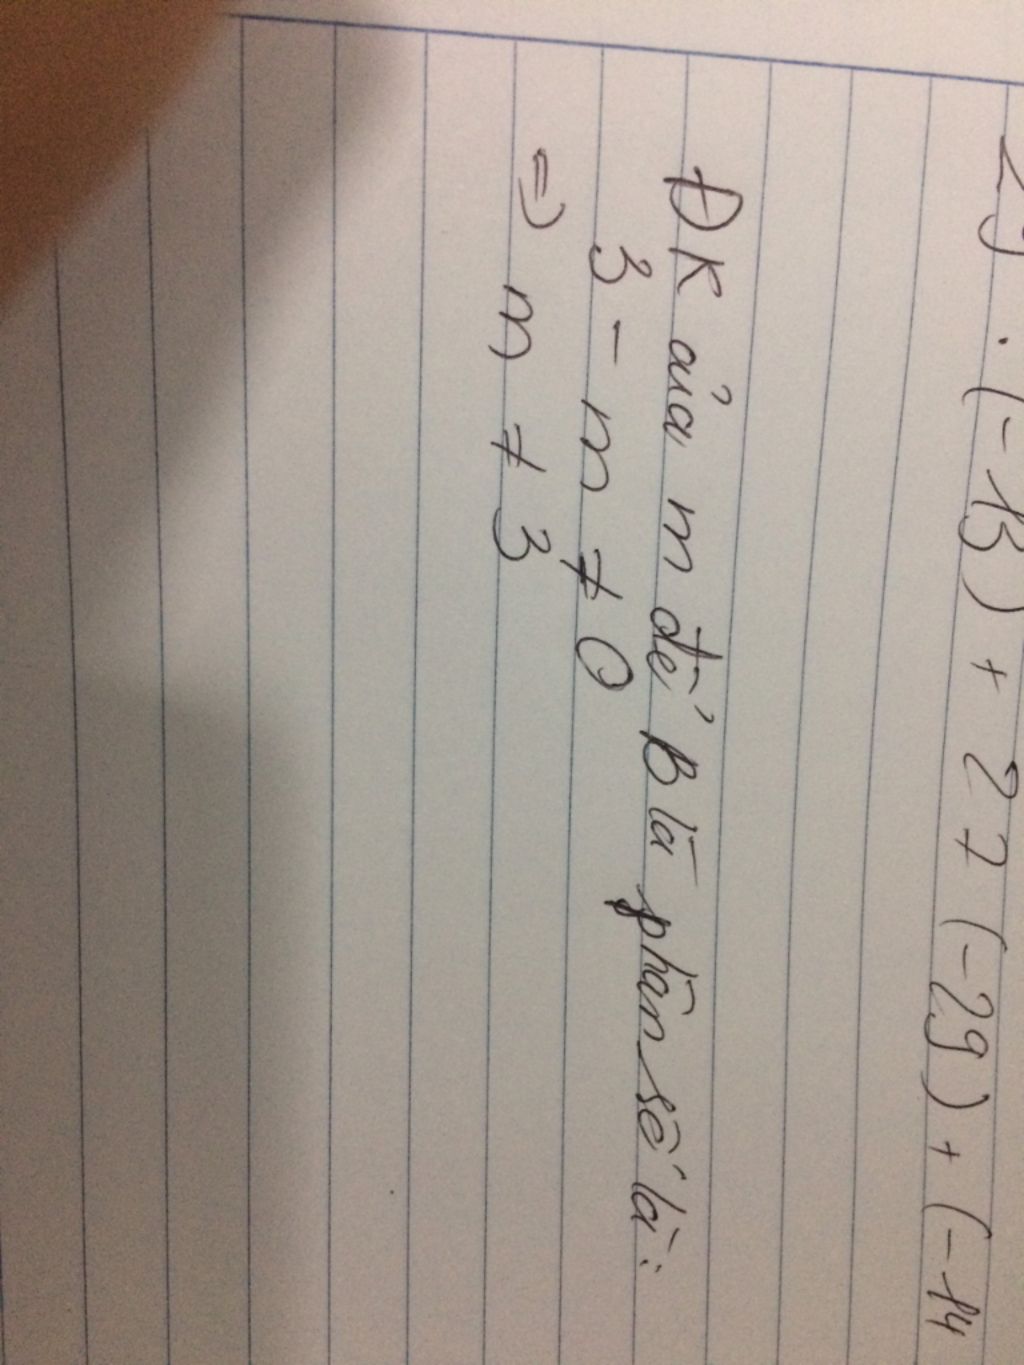 29 . (-13) + 27 (-29) + (-14
ĐK của m để B là phân số là:
3 - m ≠ 0
=> m ≠ 3